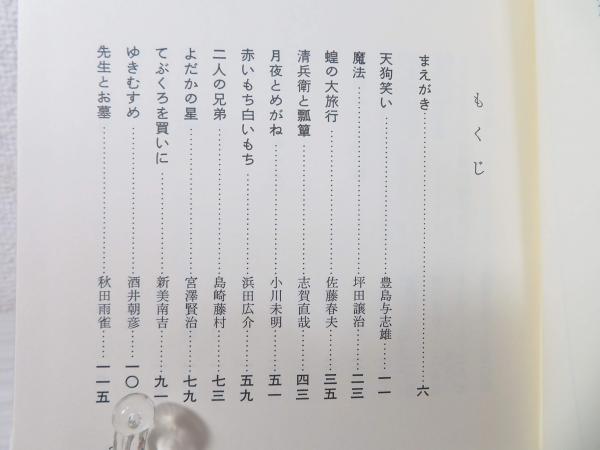 もくじ
まえがき……………………六
天狗笑い……………………豊島与志雄……一一
魔法……………………坪田譲治……二三
蝗の大旅行……………………佐藤春夫……三五
清兵衛と瓢簞……………………志賀直哉……四三
月夜とめがね……………………小川未明……五一
赤いもち白いもち……………………浜田広介……五九
二人の兄弟……………………島崎藤村……七三
よだかの星……………………宮澤賢治……七九
てぶくろを買いに……………………新美南吉……九一
ゆきむすめ……………………酒井朝彦……一〇
先生とお墓……………………秋田雨雀……一一五